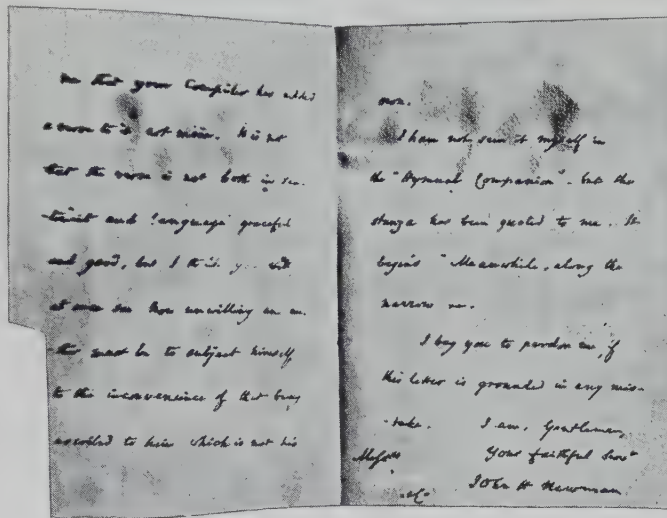 me that your Compiler has added
a verse to it not mine. It is not
that the verse is not both in sen-
timent and language graceful
and good, but I think you will
at once see how unwilling an au-
thor must be to subject himself
to the inconvenience of that being
ascribed to him which is not his
own.
I have not seen it myself in
the "Hymnal Companion" - but the
stanza has been quoted to me. It
begins "Meanwhile, along the
narrow
I beg you to pardon me, if
this letter is grounded in any mis-
-take. I am, Gentlemen,
Your faithful Servt
John H Newman
Messrs